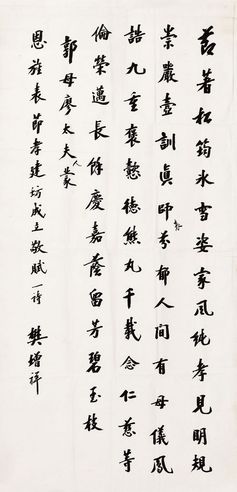 節著松筠冰雪姿家風純孝見明規
崇嚴壼訓真師芬郁人間有母儀鳳
誥九重褒懿德熊丸千載念仁慈等
倫榮邁長餘慶嘉蔭留芳碧玉枝
郭母廖太夫人蒙
恩旌表節孝建坊成立敬賦一詩 樊增祥